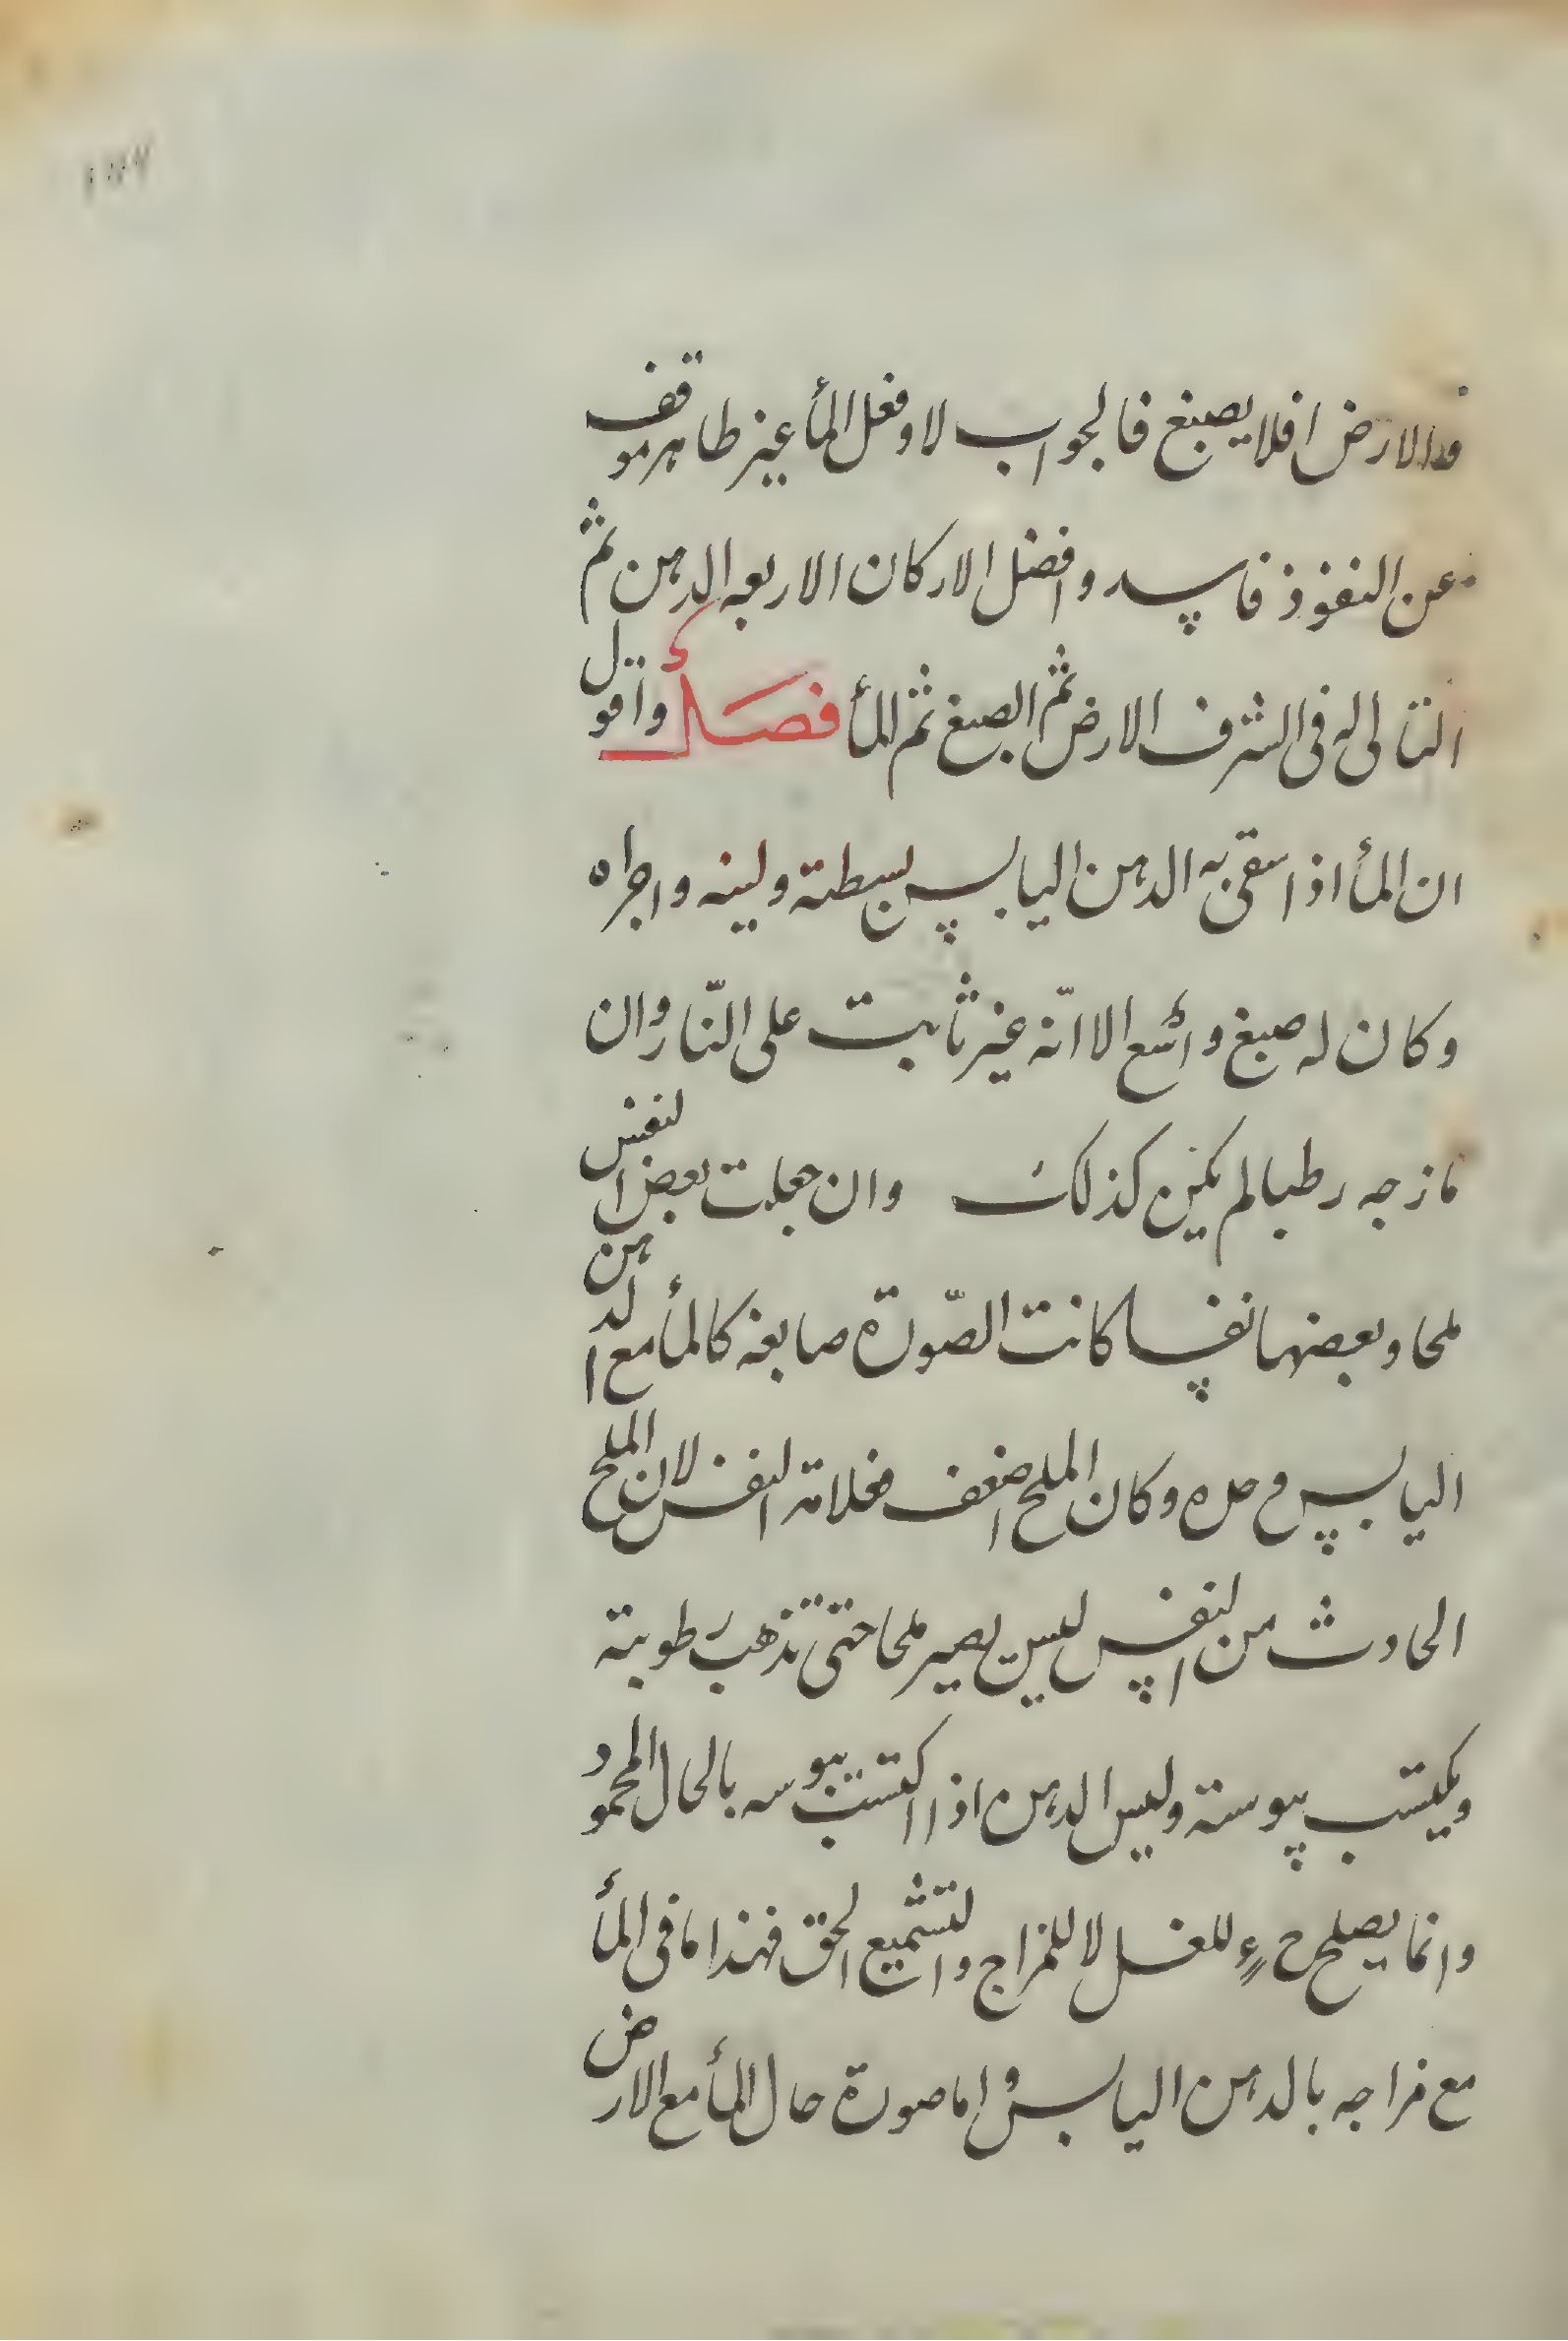 الارض افلا يصبغ فالجواب لا وفعل المأ غير طاهر موقف
عن النفوذ فاسد وافضل الاركان الاربعه الدهن ثم
التالى له فى الشرف الارض ثم الصبغ ثم المأ فصل واقول
ان المأ اذا سقى به الدهن اليابس بسطته ولينه واجراه
وكان له صبغ واسع الا انّه غير ثابت على النّار وان
مازجه رطبا لم يكن كذلك وان جعلت بعض النفس
ملحا وبعضها نفسا كانت الصّورة صابغه كالمأ مع الدهن
اليابس وحده وكان الملح اضعف فعلا من النفس لان الملح
الحادث من النفس ليس يصير ملحا حتى تذهب رطوبته
ويكتسب يبوسته وليس الدهن اذا اكتسب يبوسه بالحال المحمود
وانما يصلح ح للغسل لا للمزاج والتشميع الحق فهذا ما فى المأ
مع مزاجه بالدهن اليابس واما صورة حال المأ مع الارض